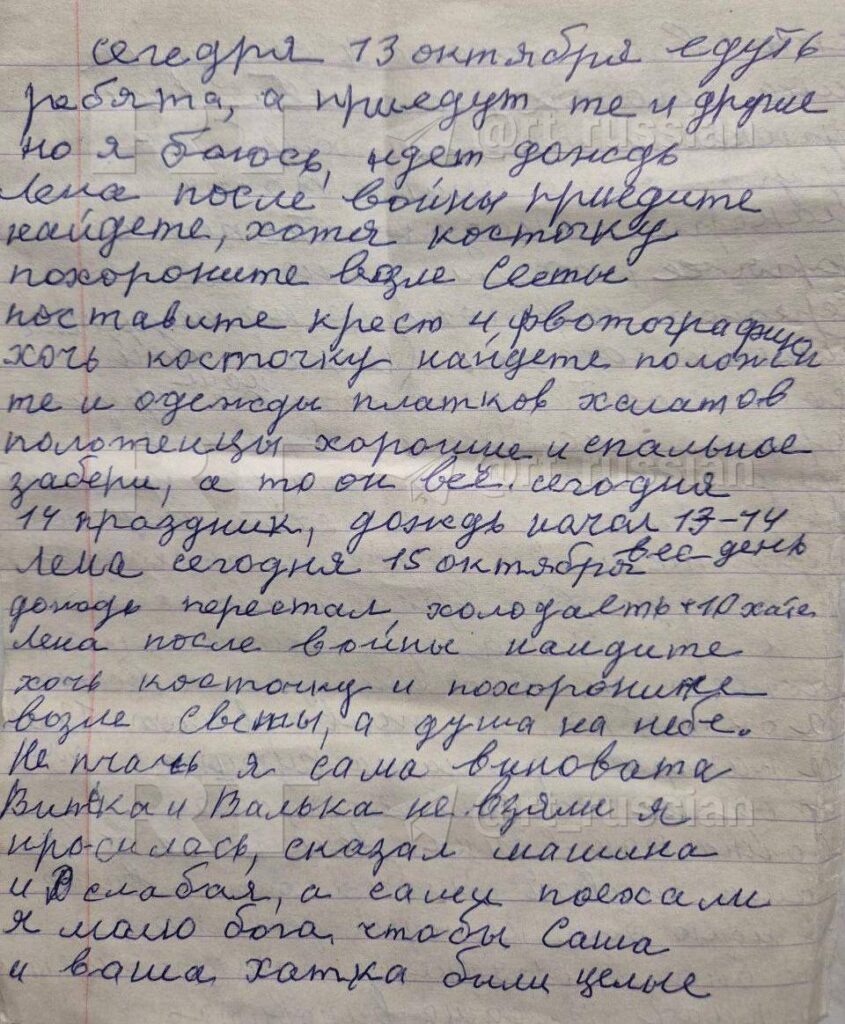 сегедря 13 октября едуть
ребята, а приедут те и другие
но я боюсь, идет дождь
Лена после войны приедите
найдете, хотя косточку
похороните возле Светы
поставите крест и фвотографию
хочь косточку найдете положи
те и одежды платков халатов
полотенцы хорошие и спальное
забери, а то он всё. сегодня
14 праздник, дождь начал 13-14
Лена сегодня 15 октября вес день
дождь перестал, холодаеть +10 хате
Лена после войны найдите
хочь косточку и похороните
возле Светы, а душа на небе.
Не плачь я сама вуновата
Витька и Валька не взяли я
просилась, сказал машина
и слабая, а сами поехали
я молю бога, чтобы Саша
и ваша хатка били целые
RT
@rt_russian
RT
@rt_russian
RT
@rt_russian